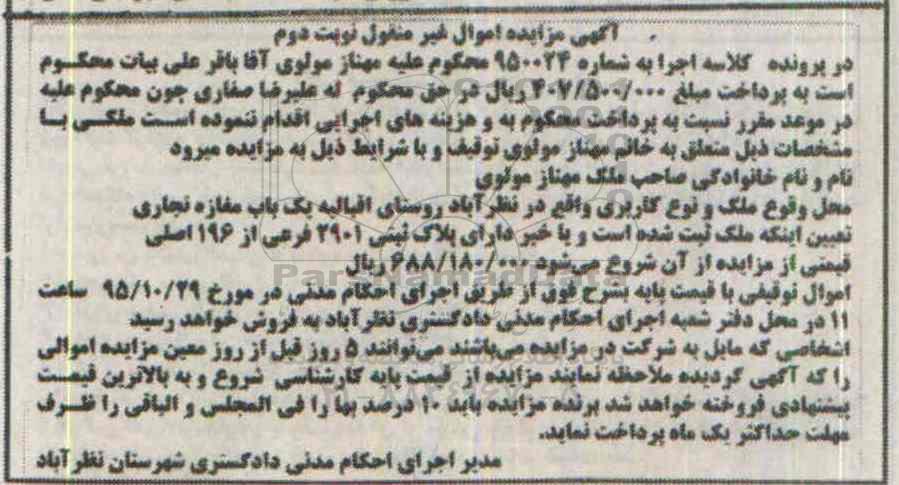 آگهی مزایده اموال غیر منقول نوبت دوم
در پرونده کلاسه اجرا به شماره ۹۵۰۰۲۴ محکوم علیه مهناز مولوی آقا باقر علی بیات محکوم
است به پرداخت مبلغ ۴۰۷/۵۰۰/۰۰۰ ریال در حق محکوم له علیرضا صفاری چون محکوم علیه
در موعد مقرر نسبت به پرداخت محکوم به و هزینه های اجرایی اقدام ننموده است ملکی با
مشخصات ذیل متعلق به خانم مهناز مولوی توقیف و با شرایط ذیل به مزایده میرود
نام و نام خانوادگی صاحب ملک مهناز مولوی
محل وقوع ملک و نوع کاربری واقع در نظرآباد روستای اقبالیه یک باب مغازه تجاری
تعیین اینکه ملک ثبت شده است و یا خیر دارای پلاک ثبتی ۲۹۰۱ فرعی از ۱۹۶ اصلی
قیمتی از مزایده از آن شروع می‌شود ۶۸۸/۱۸۰/۰۰۰ ریال
ParsNamadData
اموال توقیفی با قیمت پایه بشرح فوق از طریق اجرای احکام مدنی در مورخ ۹۵/۱۰/۲۹ ساعت
۱۱ در محل دفتر شعبه اجرای احکام مدنی دادگستری نظرآباد به فروش خواهد رسید
اشخاصی که مایل به شرکت در مزایده می‌باشند می‌توانند ۵ روز قبل از روز معین مزایده اموالی
را که آگهی گردیده ملاحظه نمایند مزایده از قیمت پایه کارشناسی شروع و به بالاترین قیمت
پیشنهادی فروخته خواهد شد برنده مزایده باید ۱۰ درصد بها را فی المجلس و الباقی را ظرف
مهلت حداکثر یک ماه پرداخت نماید.
مدیر اجرای احکام مدنی دادگستری شهرستان نظرآباد